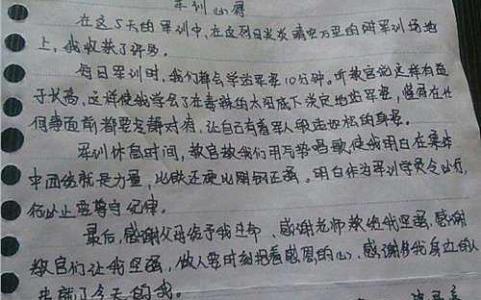 军训心得
在这5天的军训中,在这烈日炎炎晴空万里的军训场地
上,我收获了许多。
每日军训时,我们都会学站军姿10分钟。听教官说这样有益
于长高,这样使我学会了在毒辣的太阳底下淡定地站军姿,懂得在
何事面前都要冷静对待,让自己有着军人般连松的身姿。
军训休息时间,教官教我们用气势唱歌使我明白在集体
中团结就是力量,比铁还硬比刚钢还强。明白作为军训学员令必行,
行必止要尊守纪律。
最后,感谢父母给予我生命、感谢老师教给我坚强,感谢
教官们让我坚强,做人要时刻抱着感恩的心,感谢我身边的人